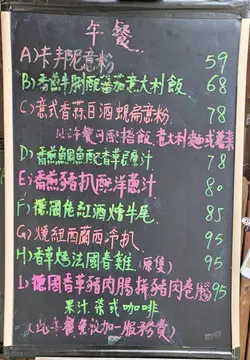 午餐
A) 卡邦尼意粉 59
B) 香煎牛脷配蕃茄意大利飯 68
C) 意式香蒜白酒蜆扁意粉 78
以上午餐可配搭飯,意大利麵或薯菜
D) 香煎鯛魚配香草忌廉汁 78
E) 香煎豬扒配洋蔥汁 80
F) 德國免紅酒燴牛尾 85
G) 燒紐西蘭西冷扒 95
H) 香草燒法國春雞(原隻) 95
I) 德國香草豬肉腸拼豬肉卷腸 95
果汁,茶或咖啡
(以上午餐免設加一服務費)